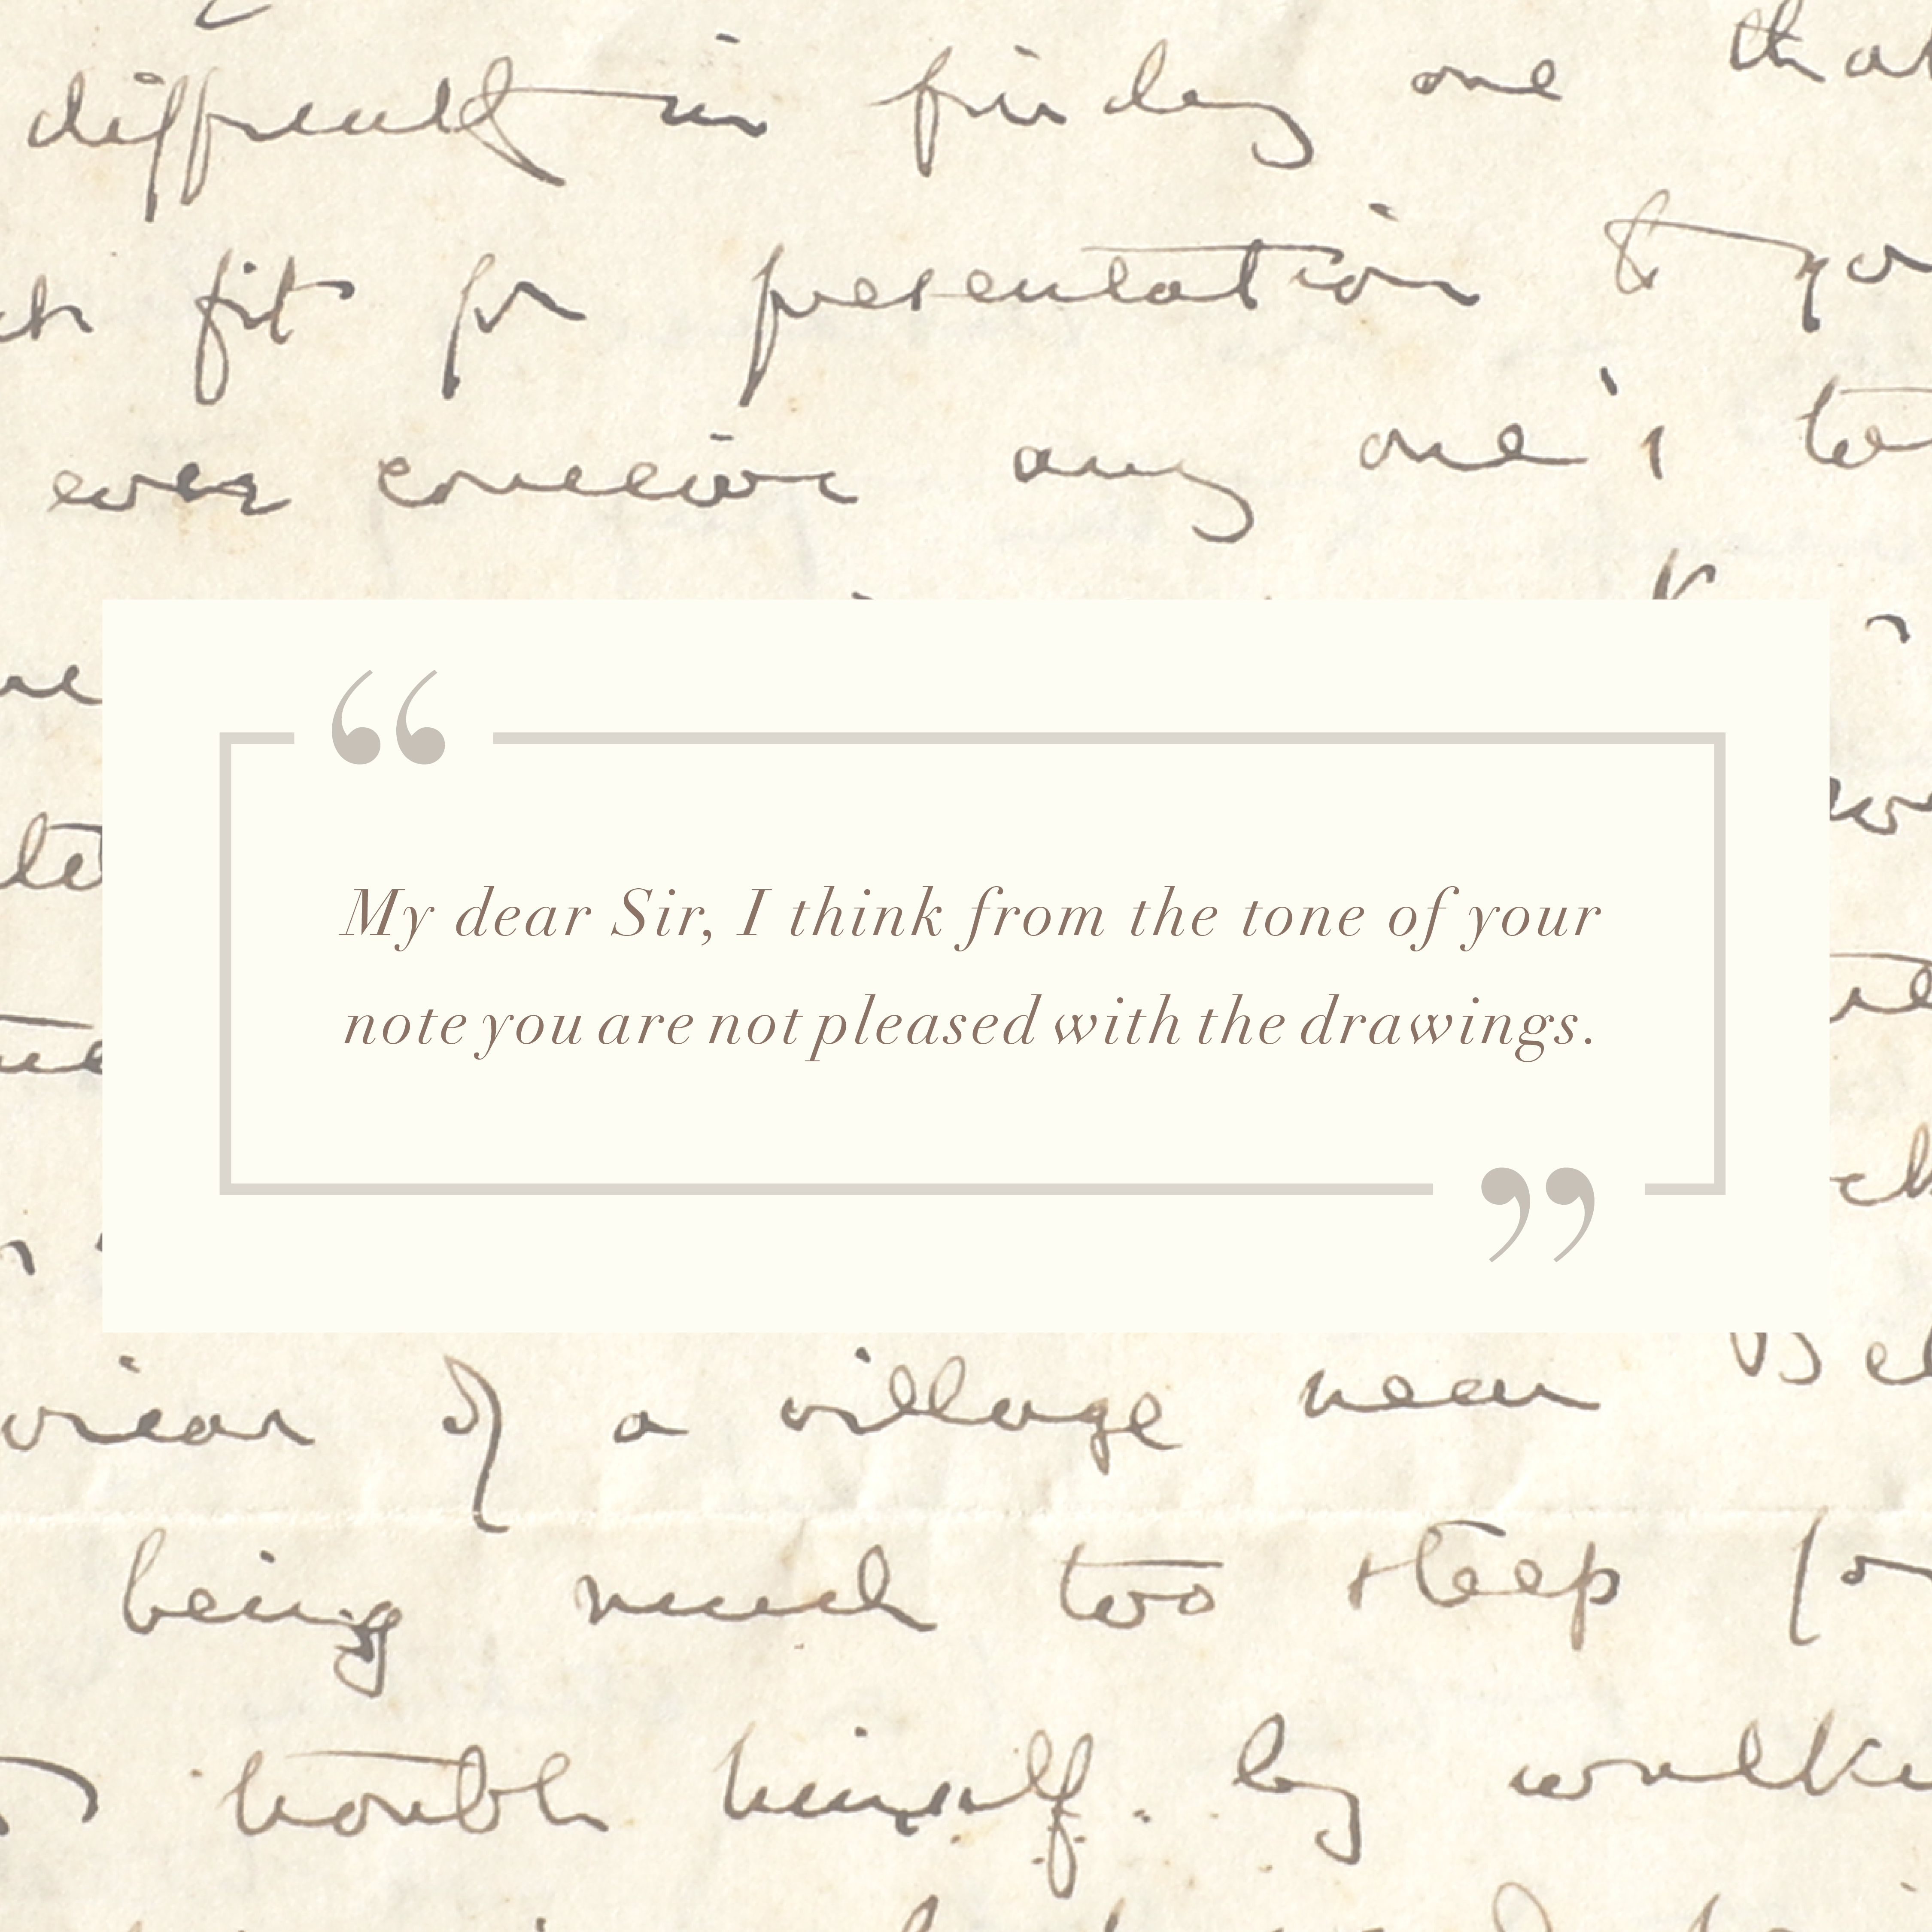 difficult in finding one that
fit for presentation to you
ever conceive any one's
“
My dear Sir, I think from the tone of your
note you are not pleased with the drawings.
”
vicar of a village near Bel
being much too steep for
trouble himself by walki